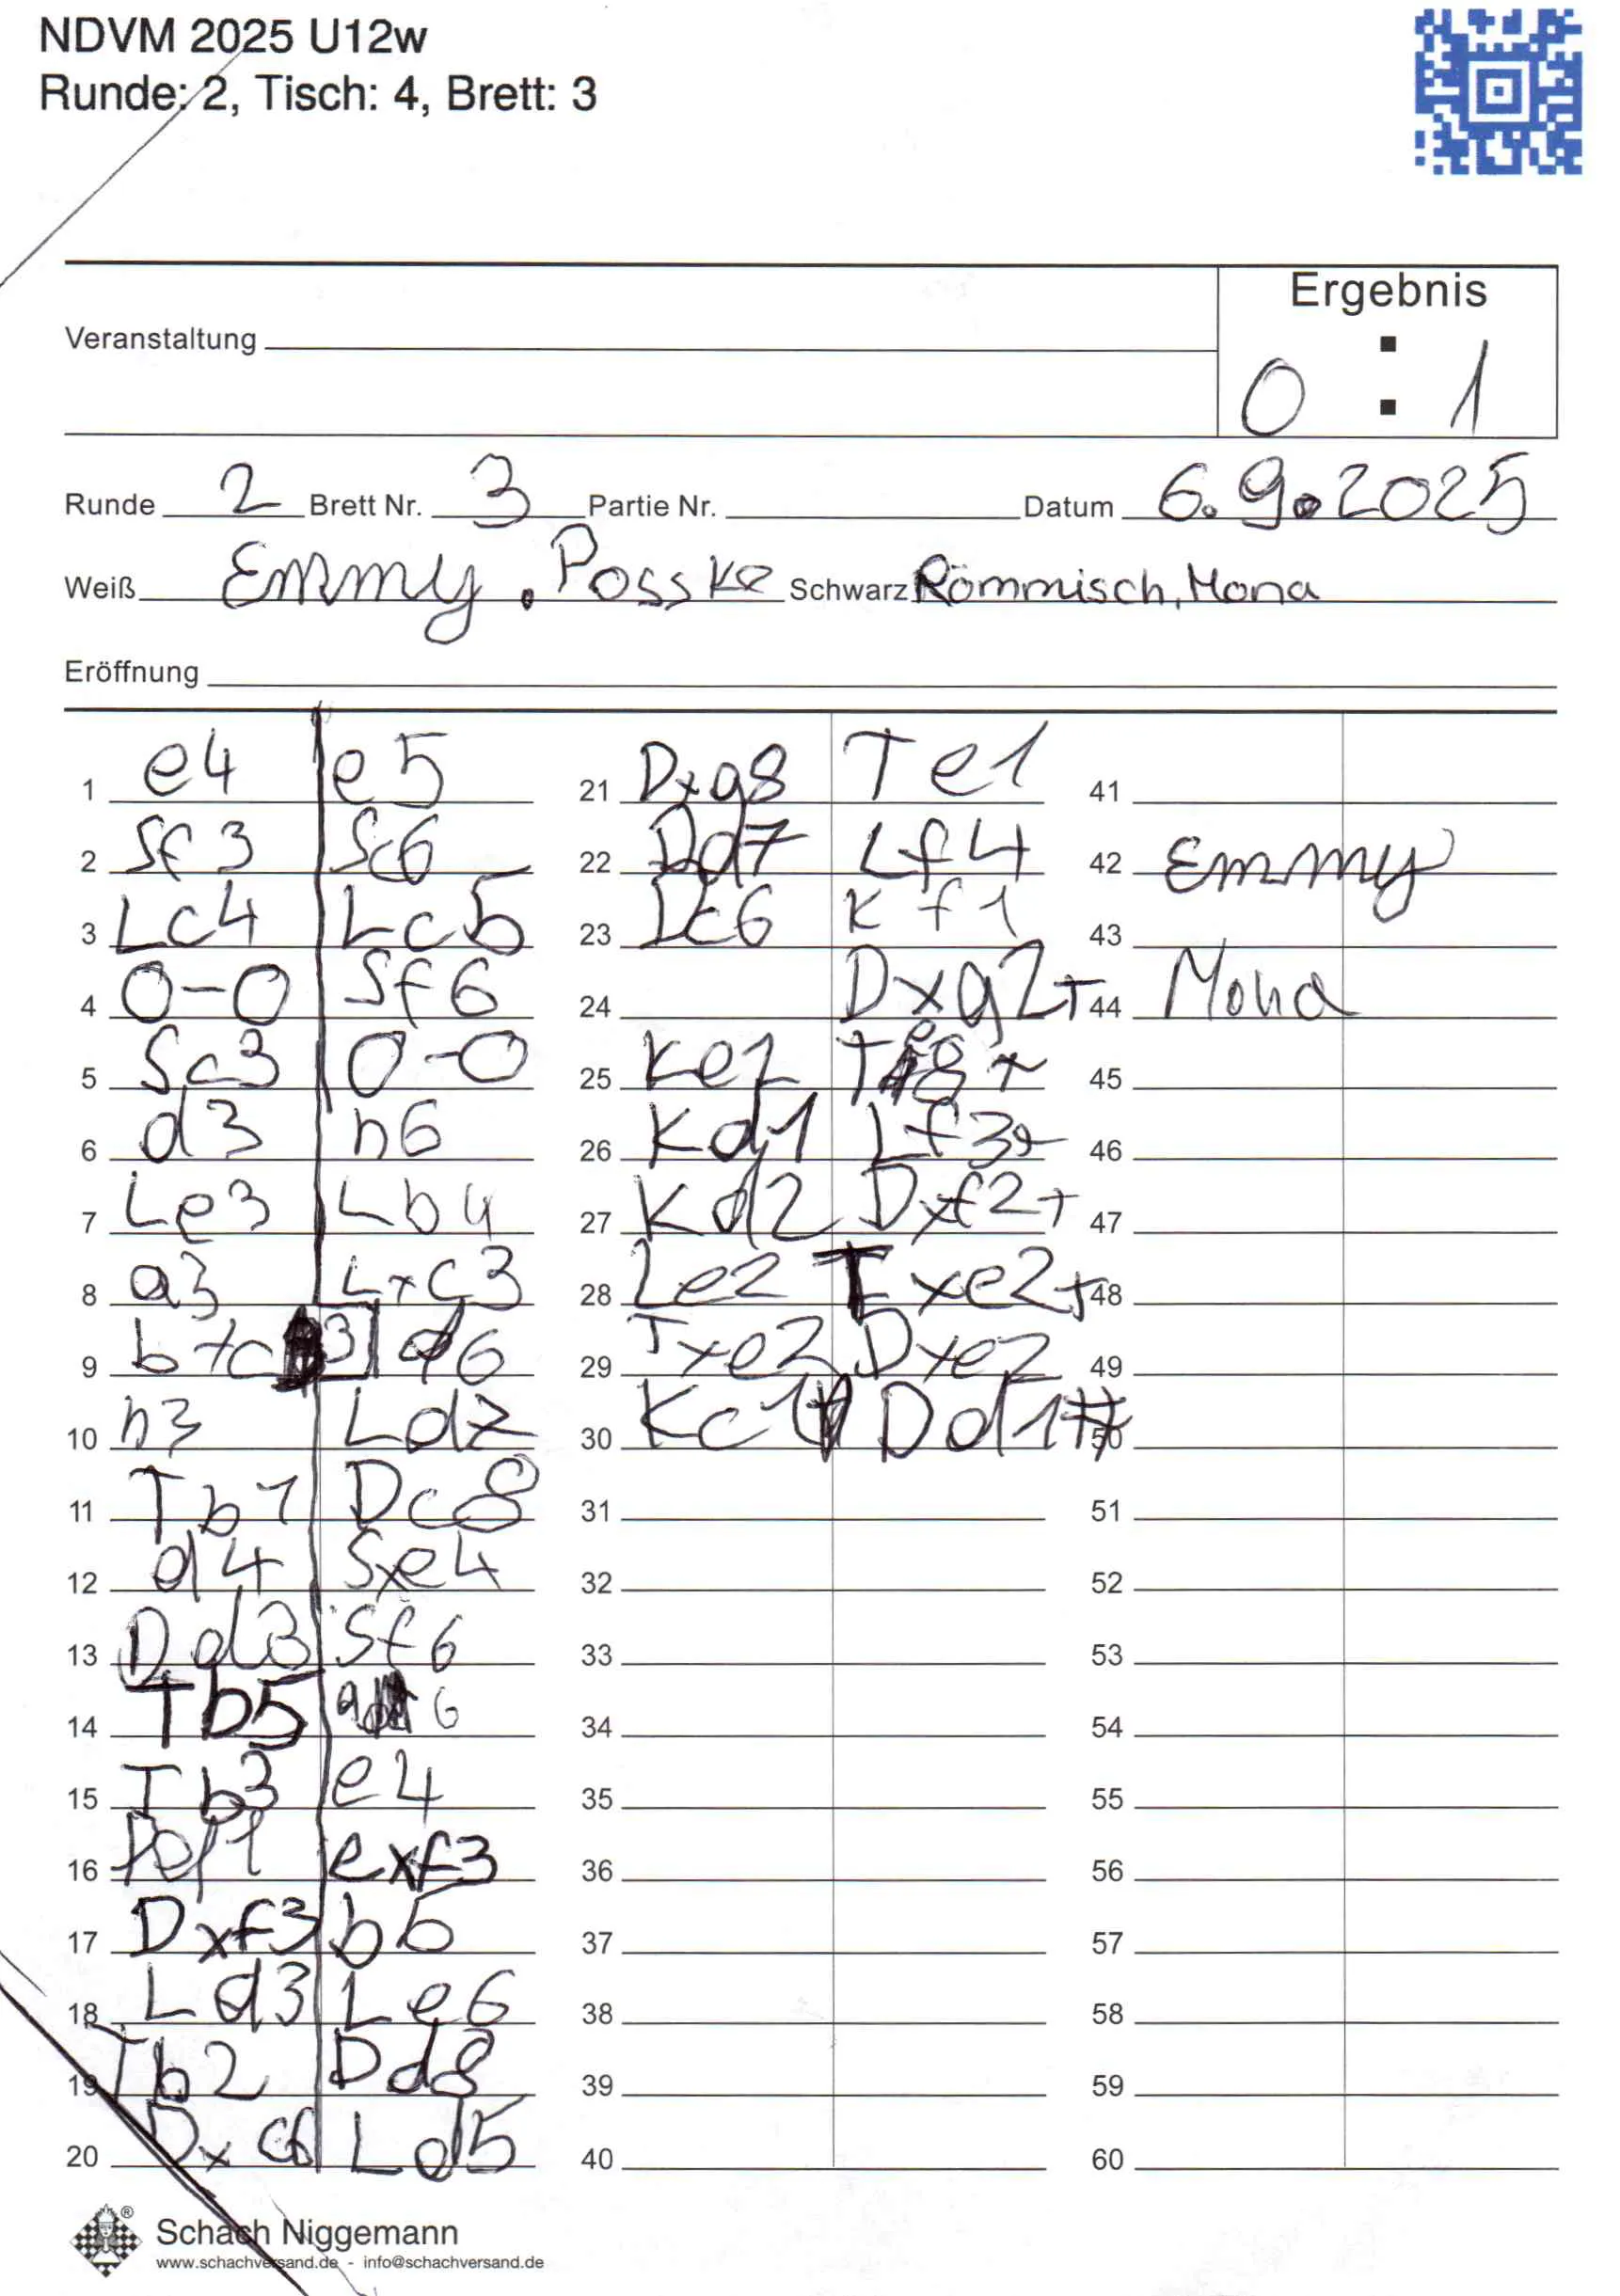 NDVM 2025 U12w
Runde: 2, Tisch: 4, Brett: 3
Ergebnis
Veranstaltung
0 : 1
Runde 2 Brett Nr. 3 Partie Nr. Datum 6.9.2025
Weiß Emmy. Posske Schwarz Römmisch, Mona
Eröffnung
1 e4 e5
2 Sf3 Sc6
3 Lc4 Lc5
4 0-0 Sf6
5 Sc3 0-0
6 d3 h6
7 Le3 Lb4
8 a3 Lxc3
9 bxc3 d6
10 h3 Ld7
11 Tb1 Dc8
12 d4 Sxe4
13 Dd3 Sf6
14 Tb5 a6
15 Tb3 e4
16 exf3
17 Dxf3 b5
18 Ld3 Le6
19 Tb2 Dd8
20 Dxc6 Ld5
21 Dxa8 Te1
22 Dd7 Lf4
23 Lc6 Kf1
24 Dxg2+
25 Ke2 Te8+
26 Kd1 Lf3+
27 Kd2 Dxf2+
28 Le2 Txe2+
29 Txe2 Dxe2
30 Kc1 Dd1#
31
32
33
34
35
36
37
38
39
40
41
42 Emmy
43
44 Mona
45
46
47
48
49
50
51
52
53
54
55
56
57
58
59
60
Schach Niggemann
www.schachversand.de - info@schachversand.de